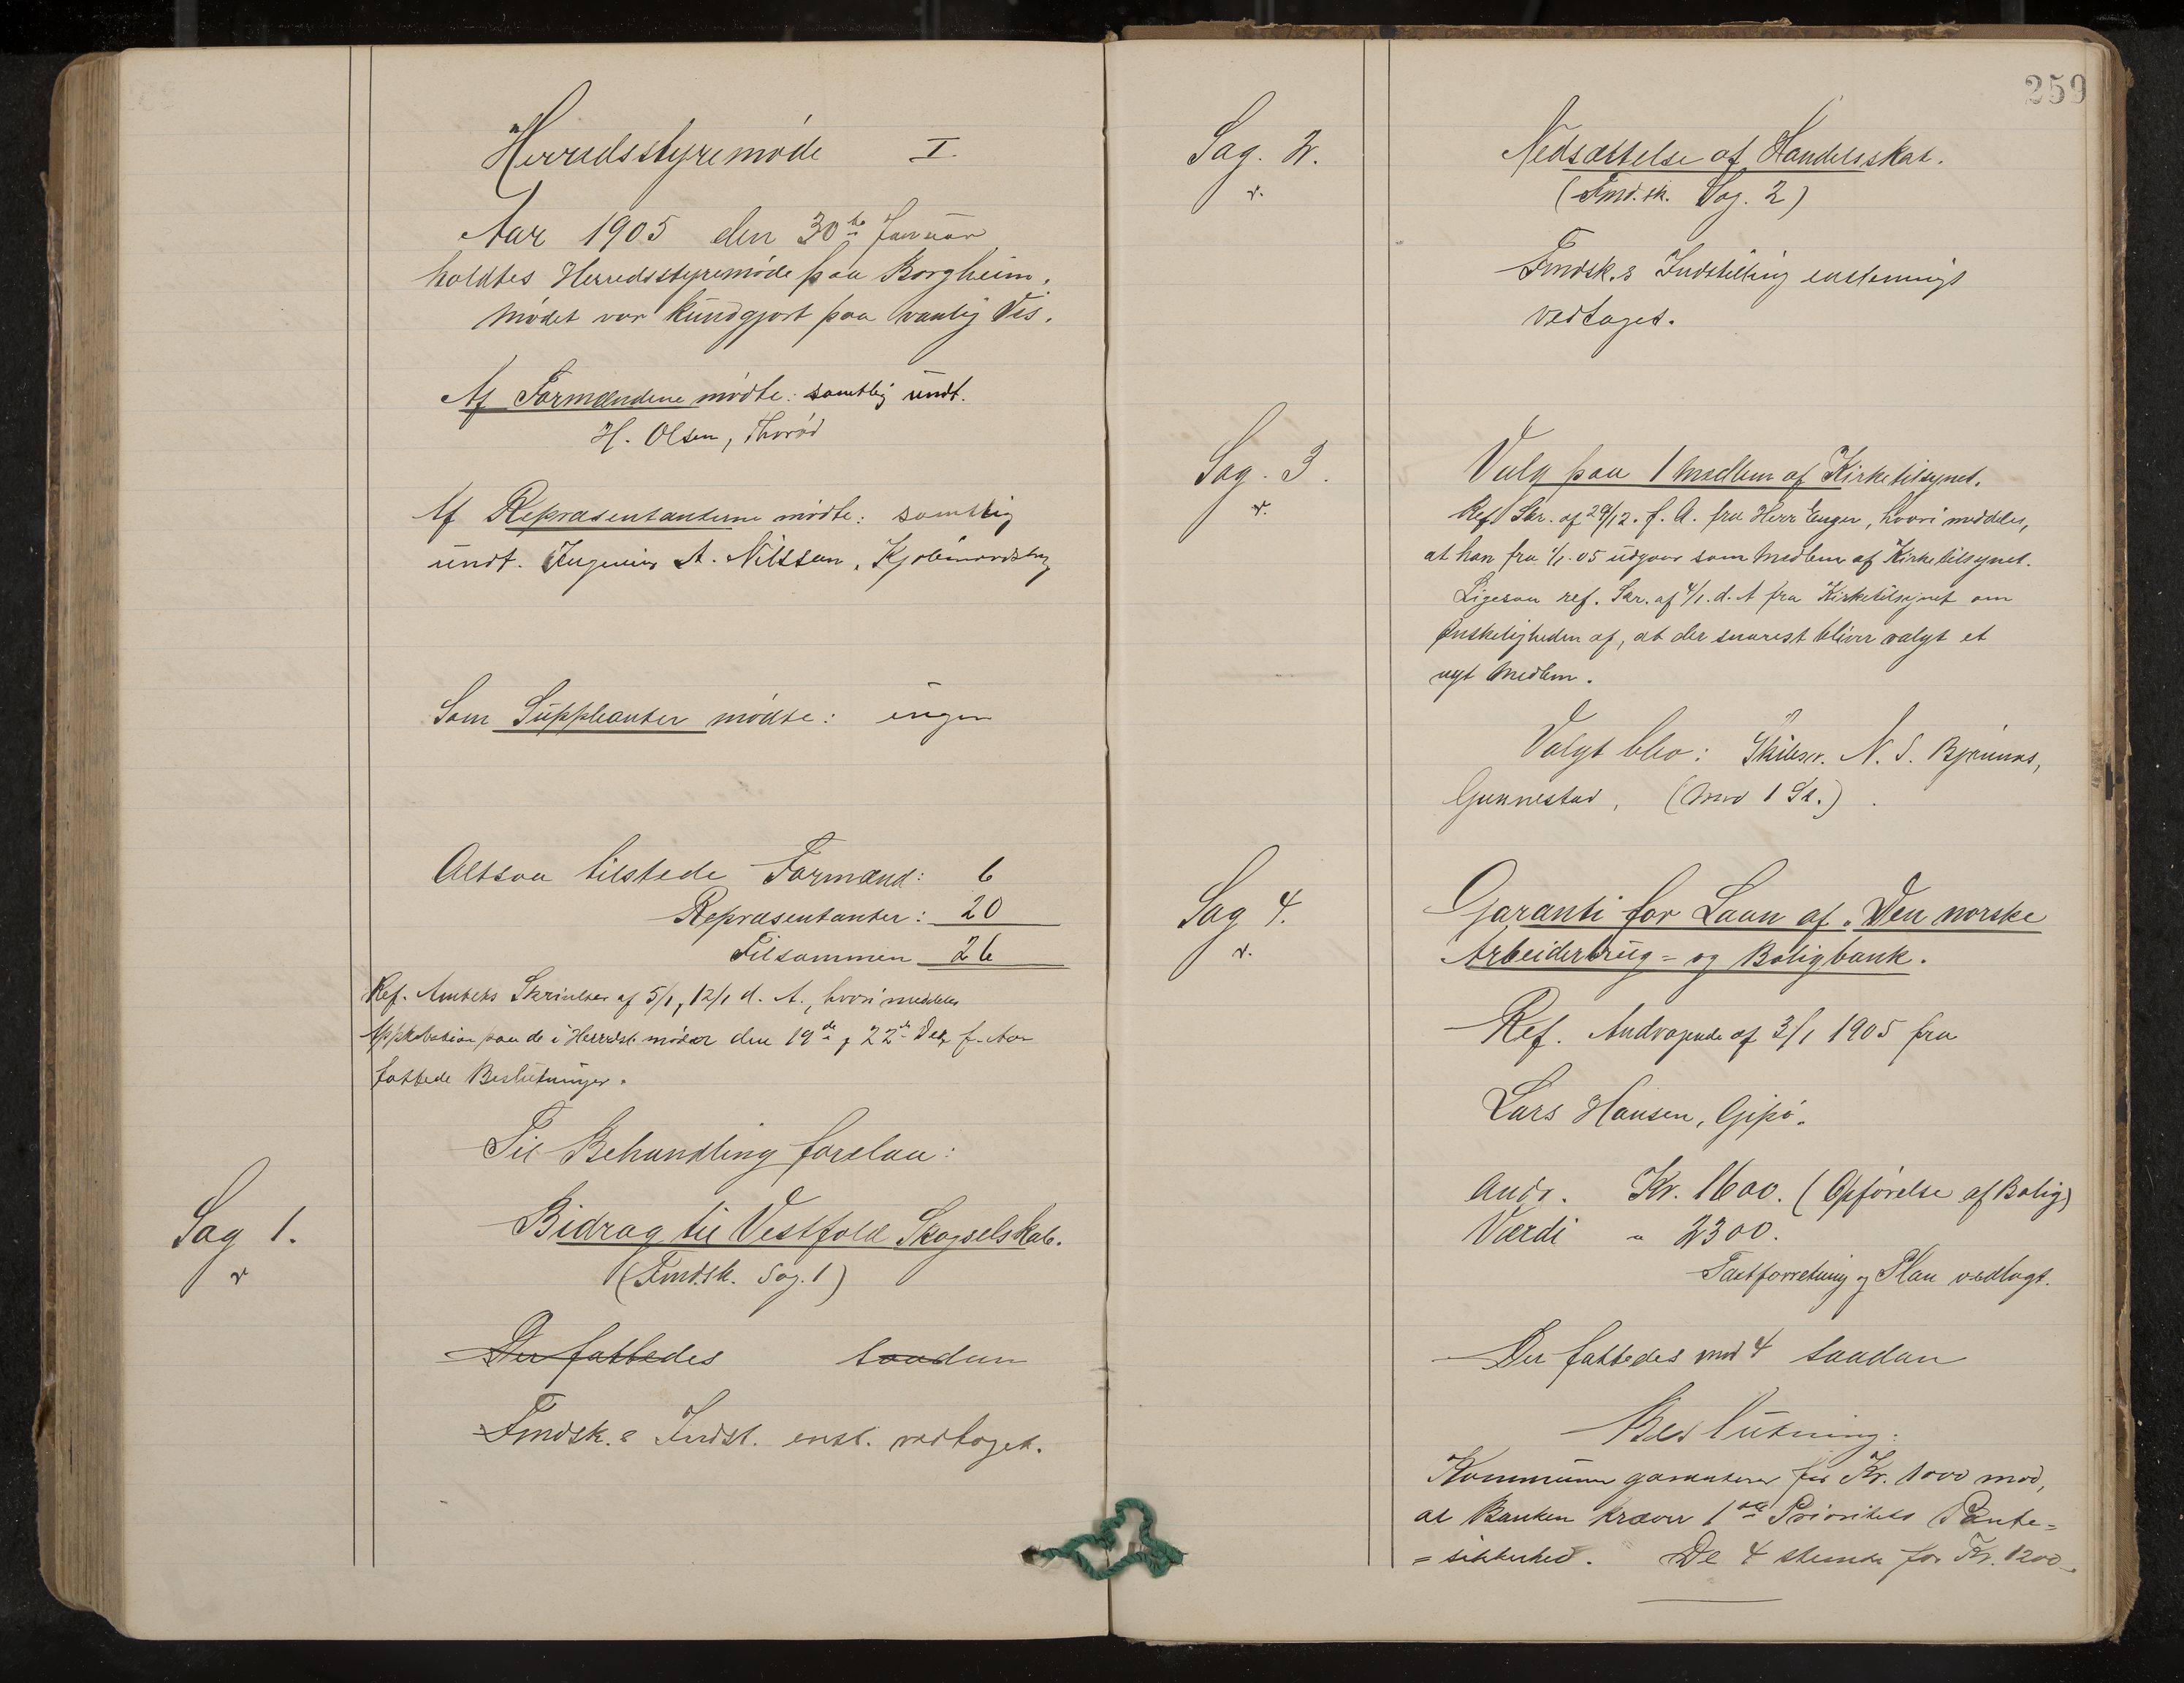 Herredsstyremöde I
Aar 1905 den 30te Januar
holdtes Herredsstyremöde paa Borgheim.
Mödet var kundgjort paa vanlig Vis.
Af Formændene mödte: samtlig undt.
H. Olsen, Thoröd
Af Repræsentanterne mödte: samtlig
undt. Ingeniør A. Nilssen, Kjølnerødsby
Som Suppleanter mödte: ingen
Altsaa tilstede Formænd: 6
Repræsentanter: 20
Tilsammen 26
Ref. Amtets Skrivelser af 5/1, 12/1 d. A., hvori meddeles
Approbation paa de i Herredst. möder den 19de og 22de Dec. f. Aar
fattede Beslutninger.
Til Behandling forelaa:
Sag 1.
v
Bidrag til Vestfold Skogselskab.
(Fmdsk. Sag. 1)
Der fattedes saadan
Fmdsk.s Indst. enst. vedtaget.
259
Sag. 2.
v.
Nedsættelse af Handelsskat.
(Fmd.sk. Sag. 2)
Fmdsk.s Indstilling enstemmigt
vedtaget.
Sag. 3.
v.
Valg paa 1 Medlem af Kirketilsynet.
Ref. Skr. af 29/12. f. A. fra Herr Enger, hvori meddeles,
at han fra 1/1. 05 udgaar som Medlem af Kirketilsynet.
Ligesaa ref. Skr. af 4/1. d. A fra Kirketilsynet om
Ønskeligheden af, at der snarest bliver valgt et
nyt Medlem.
Valgt blev: Skibsr. N. S. Bjønnes,
Gunnestad, (mod 1 St.)
Sag 4.
v.
Garanti for Laan af "Den norske
Arbeiderbrug- og Boligbank.
Ref. Andragende af 3/1 1905 fra
Lars Hansen, Gipö.
Andr. Kr. 1600. (Opførelse af Bolig)
Værdi " 2300.
Taxtforretning og Plan vedlagt.
Der fattedes mod 4 saadan
Beslutning:
Kommunen garanterer for Kr. 1000 mod,
at Banken kræver 1ste Prioritets Pante-
= sikkerhed. De 4 stemte for Kr. 1200.